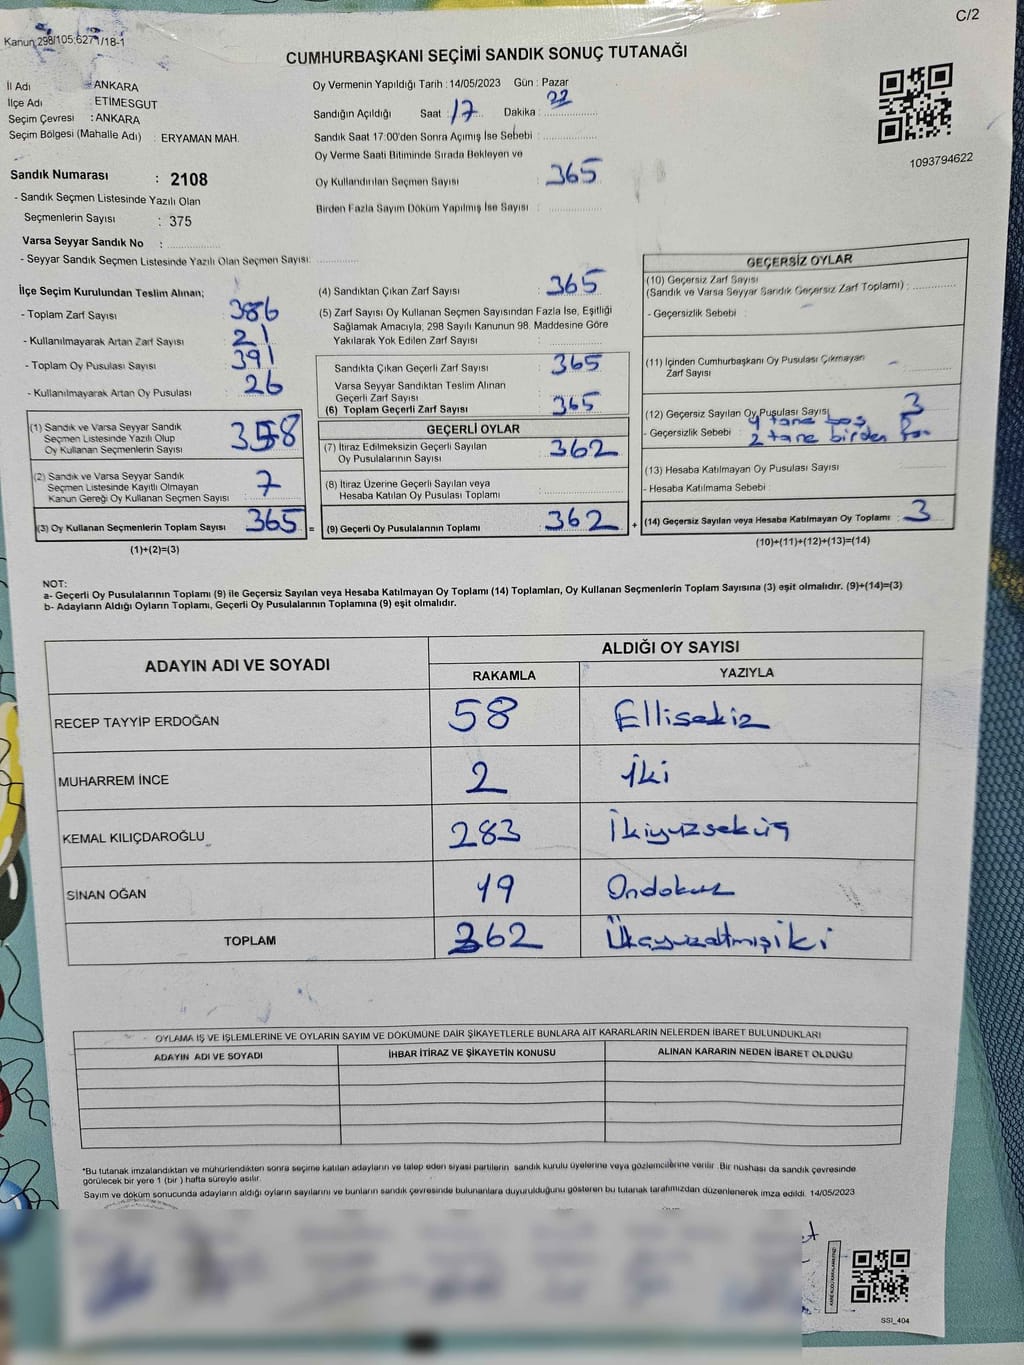 C/2
Kanun 298/105:627 /18-1
CUMHURBAŞKANI SEÇİMİ SANDIK SONUÇ TUTANAĞI
İl Adı : ANKARA
İlçe Adı ETİMESGUT
Seçim Çevresi : ANKARA
Seçim Bölgesi (Mahalle Adı) : ERYAMAN MAH.
Oy Vermenin Yapıldığı Tarih : 14/05/2023 Gün : Pazar
Sandığın Açıldığı Saat : 17 Dakika : 22
Sandık Saat 17:00'den Sonra Açımış İse Sebebi :
Oy Verme Saati Bitiminde Sırada Bekleyen ve
Oy Kullandırılan Seçmen Sayısı : 365
Birden Fazla Sayım Döküm Yapılmış İse Sayısı :
1093794622
Sandık Numarası : 2108
- Sandık Seçmen Listesinde Yazılı Olan
Seçmenlerin Sayısı : 375
Varsa Seyyar Sandık No :
- Seyyar Sandık Seçmen Listesinde Yazılı Olan Seçmen Sayısı:
İlçe Seçim Kurulundan Teslim Alınan;
- Toplam Zarf Sayısı : 386
- Kullanılmayarak Artan Zarf Sayısı : 21
- Toplam Oy Pusulası Sayısı : 391
- Kullanılmayarak Artan Oy Pusulası : 26
(1) Sandık ve Varsa Seyyar Sandık
Seçmen Listesinde Yazılı Olup
Oy Kullanan Seçmenlerin Sayısı : 358
(2) Sandık ve Varsa Seyyar Sandık
Seçmen Listesinde Kayıtlı Olmayan
Kanun Gereği Oy Kullanan Seçmen Sayısı : 7
(3) Oy Kullanan Seçmenlerin Toplam Sayısı : 365 =
(1)+(2)=(3)
(4) Sandıktan Çıkan Zarf Sayısı : 365
(5) Zarf Sayısı Oy Kullanan Seçmen Sayısından Fazla İse, Eşitliği
Sağlamak Amacıyla, 298 Sayılı Kanunun 98. Maddesine Göre
Yakılarak Yok Edilen Zarf Sayısı :
Sandıkta Çıkan Geçerli Zarf Sayısı : 365
Varsa Seyyar Sandıktan Teslim Alınan
Geçerli Zarf Sayısı :
(6) Toplam Geçerli Zarf Sayısı : 365
GEÇERLİ OYLAR
(7) İtiraz Edilmeksizin Geçerli Sayılan
Oy Pusulalarının Sayısı : 362
(8) İtiraz Üzerine Geçerli Sayılan veya
Hesaba Katılan Oy Pusulası Toplamı :
(9) Geçerli Oy Pusulalarının Toplamı : 362 +
GEÇERSİZ OYLAR
(10) Geçersiz Zarf Sayısı
(Sandık ve Varsa Seyyar Sandık Geçersiz Zarf Toplamı) :
- Geçersizlik Sebebi :
(11) İçinden Cumhurbaşkanı Oy Pusulası Çıkmayan
Zarf Sayısı : -
(12) Geçersiz Sayılan Oy Pusulası Sayısı 3
- Geçersizlik Sebebi : tane boş
2 tane birden
(13) Hesaba Katılmayan Oy Pusulası Sayısı
- Hesaba Katılmama Sebebi
(14) Geçersiz Sayılan veya Hesaba Katılmayan Oy Toplamı : 3
(10)+(11)+(12)+(13)=(14)
NOT:
a- Geçerli Oy Pusulalarının Toplamı (9) ile Geçersiz Sayılan veya Hesaba Katılmayan Oy Toplamı (14) Toplamları, Oy Kullanan Seçmenlerin Toplam Sayısına (3) eşit olmalıdır. (9)+(14)=(3)
b- Adayların Aldığı Oyların Toplamı, Geçerli Oy Pusulalarının Toplamına (9) eşit olmalıdır.
ADAYIN ADI VE SOYADI ALDIĞI OY SAYISI
RAKAMLA YAZIYLA
RECEP TAYYİP ERDOĞAN 58 Ellisekiz
MUHARREM İNCE 2 İki
KEMAL KILIÇDAROĞLU 283
SİNAN OĞAN 19 Ondokuz
TOPLAM 362
OYLAMA İŞ VE İŞLEMLERİNE VE OYLARIN SAYIM VE DÖKÜMÜNE DAİR ŞİKAYETLERLE BUNLARA AİT KARARLARIN NELERDEN İBARET BULUNDUKLARI
ADAYIN ADI VE SOYADI İHBAR İTİRAZ VE ŞİKAYETİN KONUSU ALINAN KARARIN NEDEN İBARET OLDUĞU
*Bu tutanak imzalandıktan ve mühürlendikten sonra seçime katılan adayların ve talep eden siyasi partilerin sandık kurulu üyelerine veya gözlemcilerine verilir. Bir nüshası da sandık çevresinde
görülecek bir yere 1 (bir) hafta süreyle asılır.
Sayım ve döküm sonucunda adayların aldığı oyların sayılarını ve bunların sandık çevresinde bulunanlara duyurulduğunu gösteren bu tutanak tarafımızdan düzenlenerek imza edildi. 14/05/2023
SSI_404